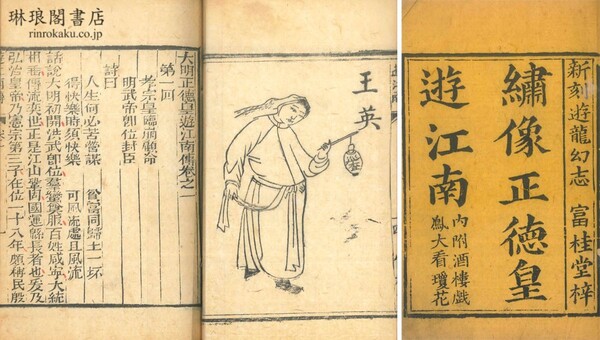 琳琅閣書店
rinrokaku.co.jp
新刻遊龍幻志 富桂堂梓
繡像正德皇
遊江南
內附酒樓戲
鳳大看瓊花
王英
大明正德皇遊江南傳卷之一
第一回
孝宗皇臨崩顧命
明武帝卽位封臣
詩曰
人生何必苦營謀 貧富同歸土一坏
得快樂時須快樂 可風流處且風流
話說大明初開洪武卽位羣黎賓服百姓咸寧大統
相承傳流奕世正是江山鞏固國運縣長者也爰及
弘治皇帝乃憲宗第三子在位一十八年頗稱民服